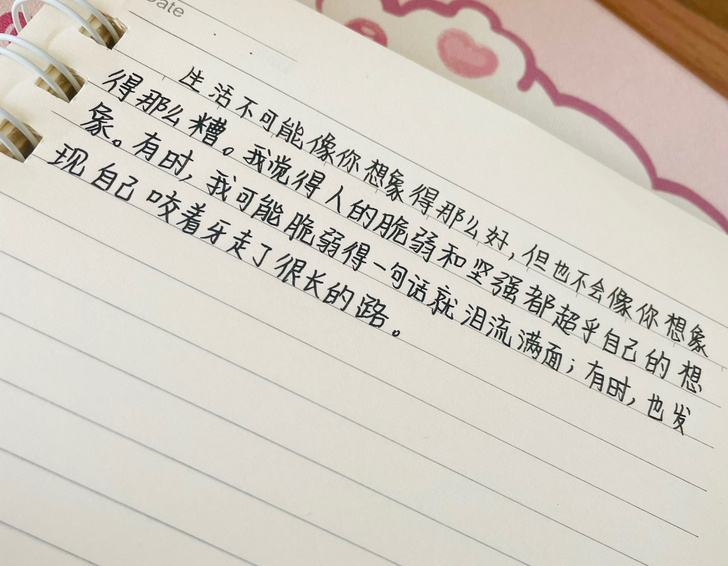 Date
生活不可能像你想象得那么好,但也不会像你想象
得那么糟。我觉得人的脆弱和坚强都超乎自己的想
象。有时,我可能脆弱得一句话就泪流满面;有时,也发
现自己咬着牙走了很长的路。